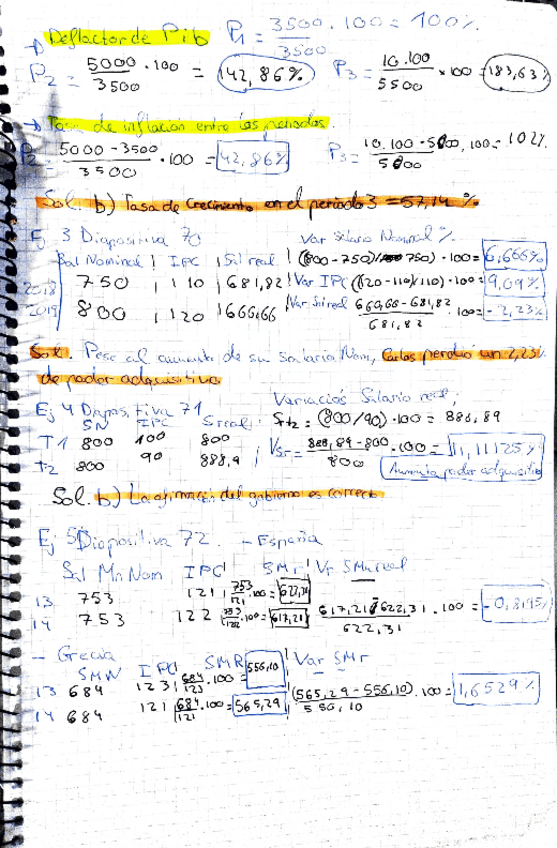 → Deflactor de Pib P1 = 3500/3500 · 100 = 100%
P2 = 5000/3500 · 100 = 142,86% P3 = 10.100/5500 × 100 = 183,63%
→ Tasa de inflación entre los periodos.
P2 = 5000-3500/3500 · 100 = 42,86% P3 = 10.100-5000/5000 · 100 = 102%
Sol. b) Tasa de Crecimiento en el periodo 3 = 57,14%
Ej 3 Diapositiva 70 Var Salario Nominal %
Sal Nominal | IPC | Sal real | (800-750)/750) · 100 = 6,666%
2018 750 | 110 | 681,82 | Var IPC (120-110/110) · 100 = 9,09%
2019 800 | 120 | 666,66 Var Sal real 666,66-681,82/681,82 · 100 = -2,23%
Sol. Pese al aumento de su salario Nom, Carlos perdió un 2,23%
de poder adquisitivo
Ej 4 Diapositiva 71 Variación Salario real,
SN IPC Sreal St2 = (800/90) · 100 = 888,89
T1 800 100 800
T2 800 90 888,9 VSr = 888,89-800/800 · 100 = 11,11125%
Aumenta poder adquisitivo
Sol. b) La afirmación del gobierno es correcta
Ej 5 Diapositiva 72. - España
Sal Mn Nom IPC SMr Vr SMn real
13 753 121 | 753/121 · 100 = 622,31
14 753 122 | 753/122 · 100 = 617,21 617,21-622,31/622,31 · 100 = -0,8195%
- Grecia
SMN IPC SMR Var SMr
13 684 123 | 684/123 · 100 = 556,10
14 684 121 | 684/121 · 100 = 565,29 (565,29-556,10)/556,10 · 100 = 1,6529%